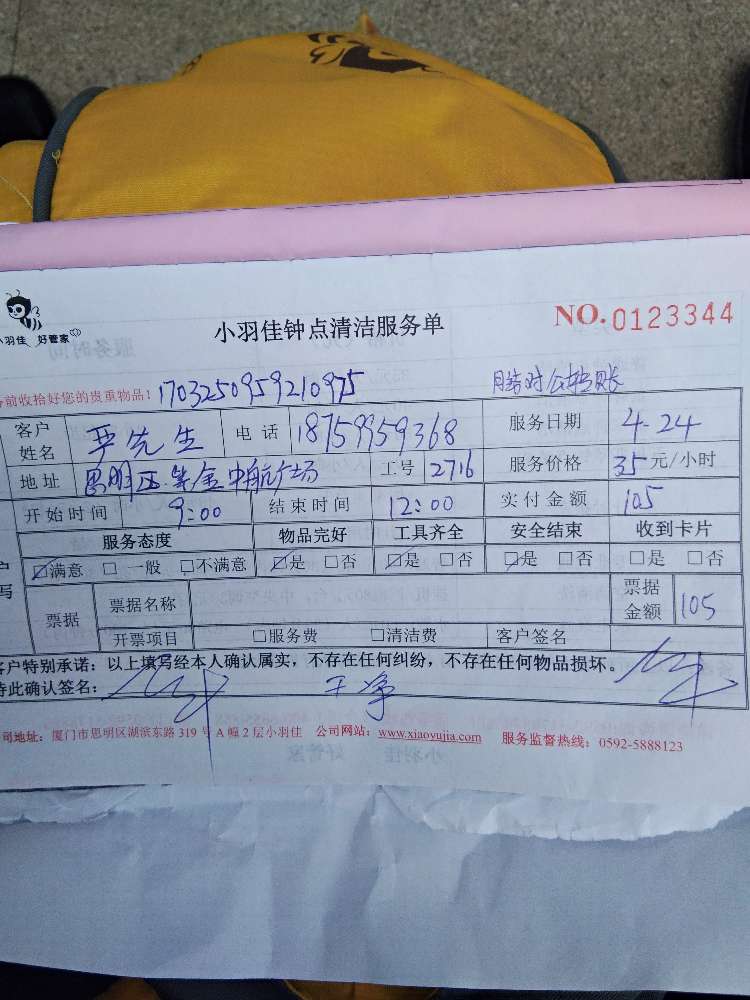 小羽佳 好管家
小羽佳钟点清洁服务单
NO.0123344
前收拾好您的贵重物品！1703250959210975
月结对公转账
客户姓名 严先生 电话 18759959368 服务日期 4-24
地址 思明区 紫金中航广场 工号 2716 服务价格 35元/小时
开始时间 9:00 结束时间 12:00 实付金额 105
服务态度 物品完好 工具齐全 安全结束 收到卡片
☑满意 □一般 □不满意 ☑是 □否 ☑是 □否 ☑是 □否 □是 □否
票据 票据名称 票据金额 105
开票项目 □服务费 □清洁费 客户签名
客户特别承诺：以上填写经本人确认属实，不存在任何纠纷，不存在任何物品损坏。
特此确认签名： 王净
司地址：厦门市思明区湖滨东路 319 号 A 幢 2 层小羽佳 公司网站：www.xiaoyujia.com 服务监督热线：0592-5888123